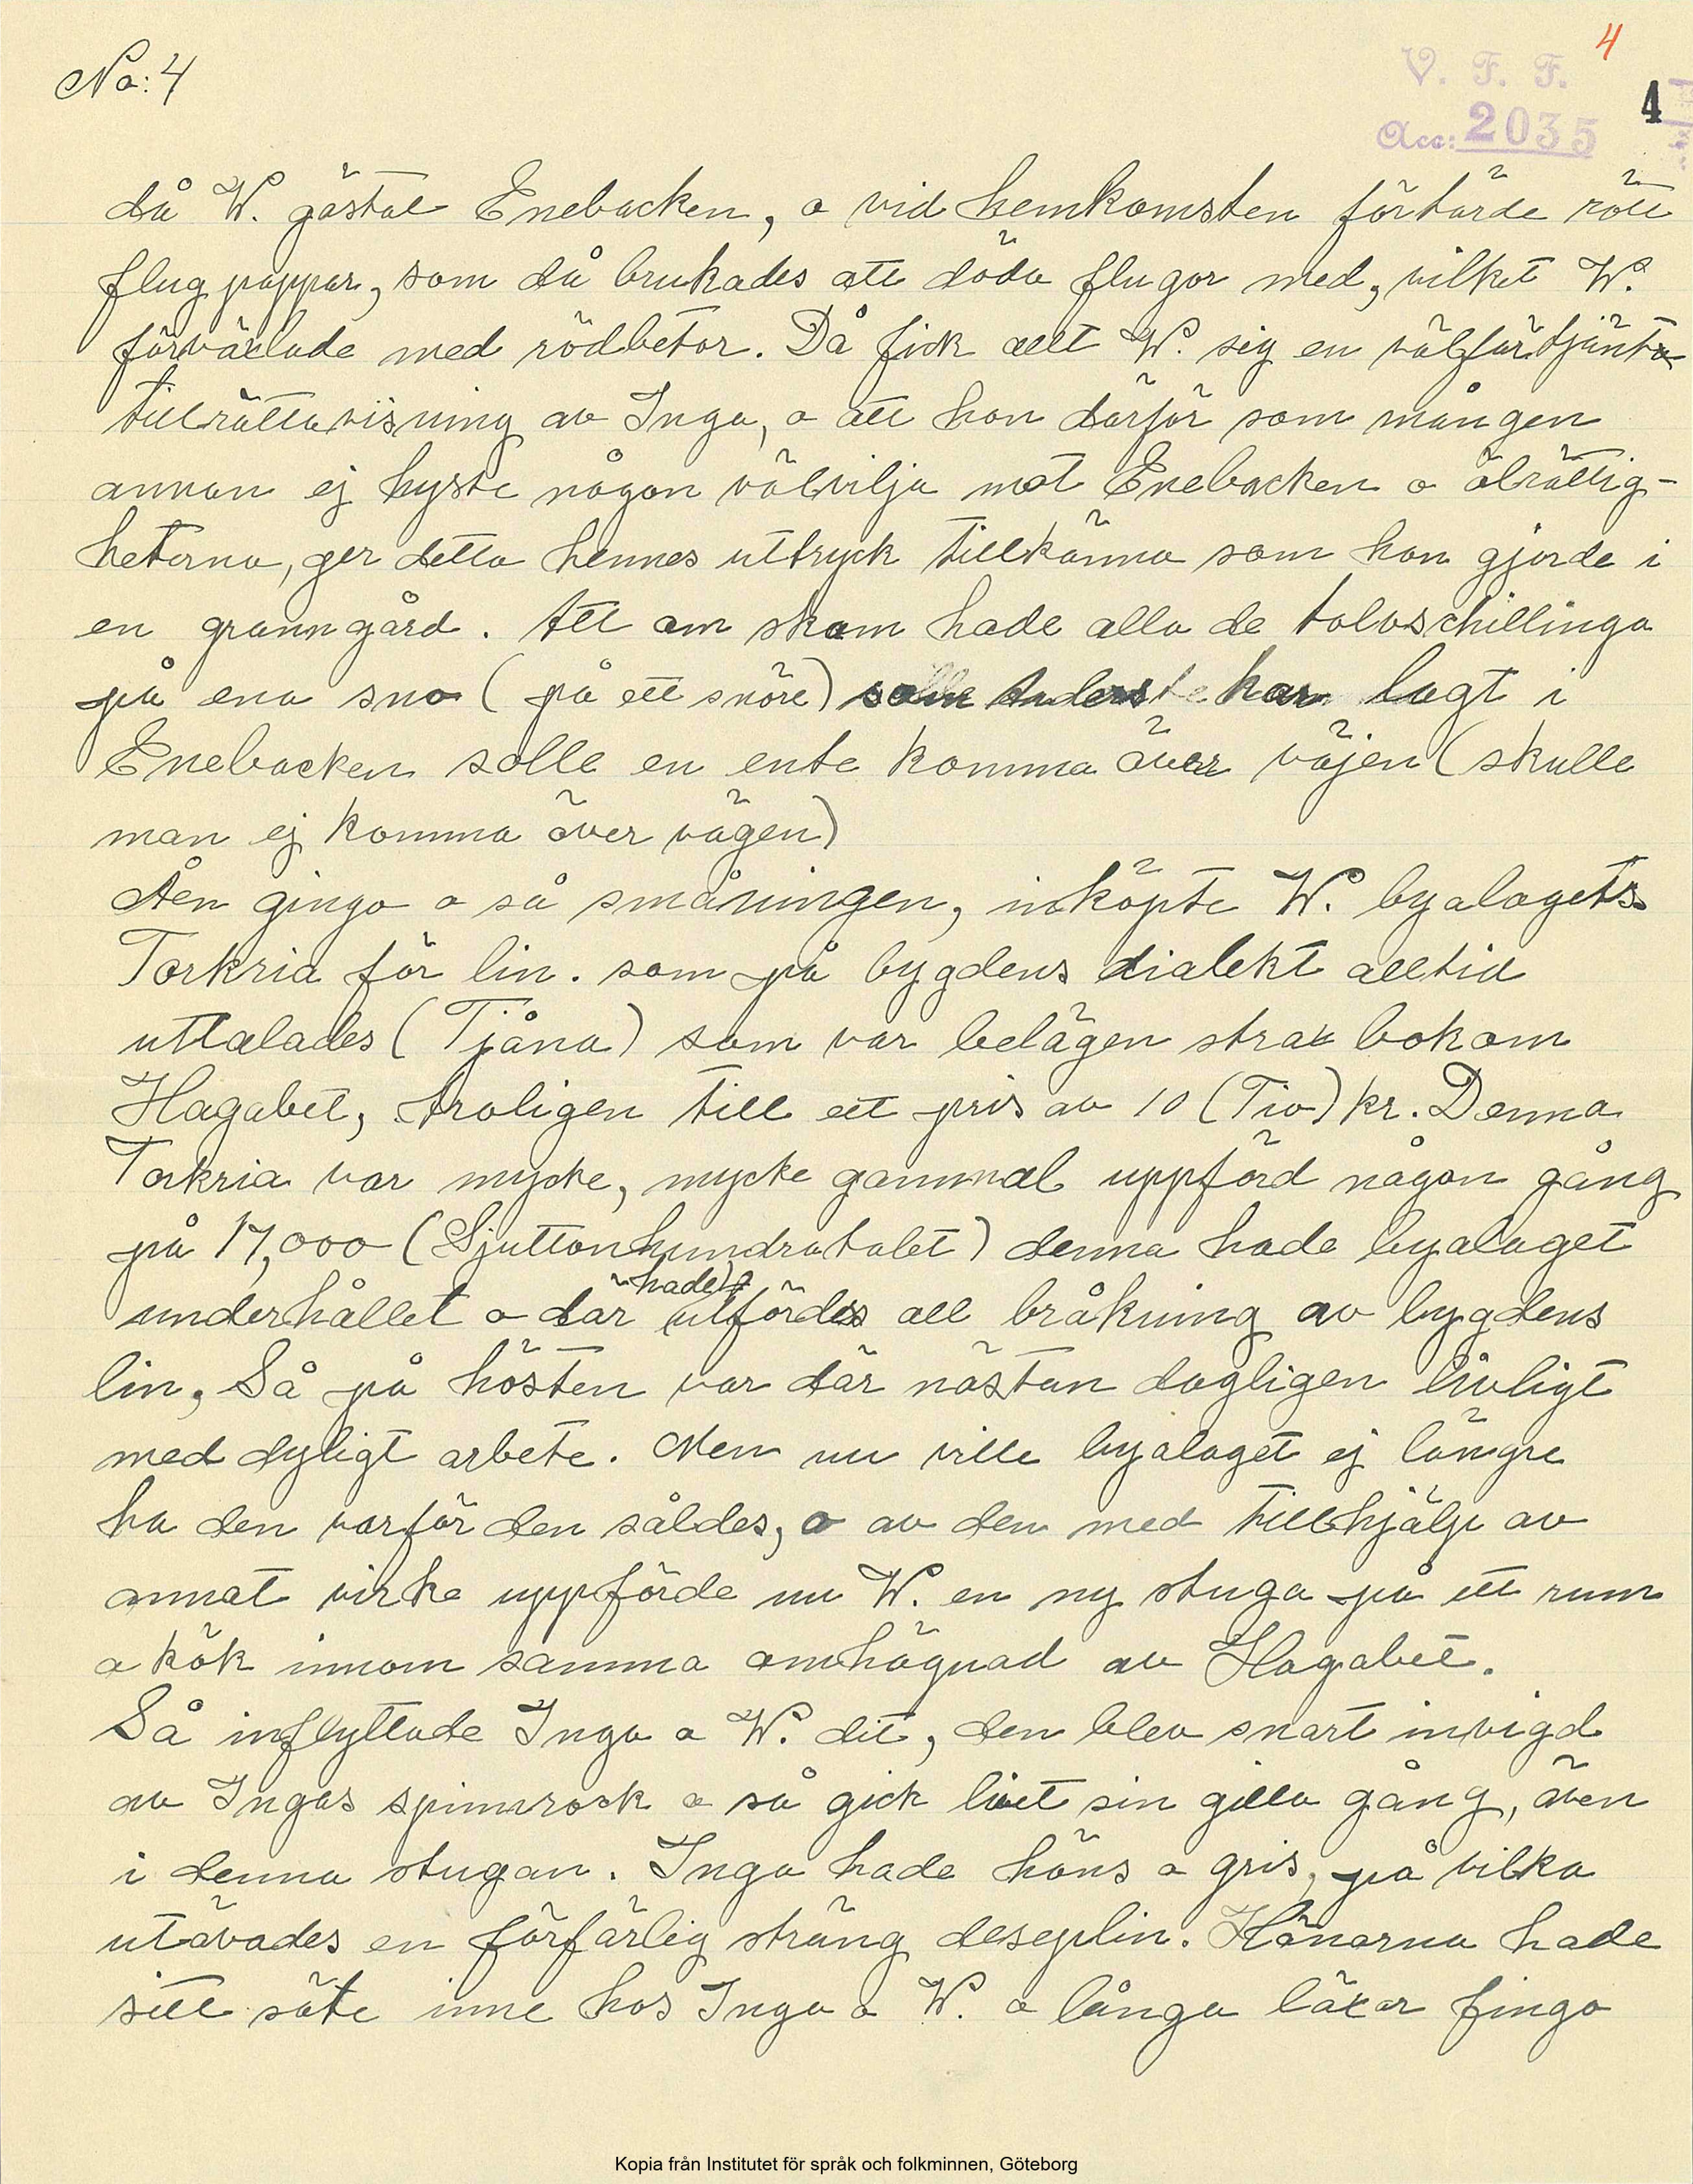 No: 4
4
V. F. F.
4
Acc: 2035
då W. gästat Enebacken, o vid hemkomsten förtärde rött
flugpapper, som då brukades att döda flugor med, vilket W.
förväxlade med rödbetor. Då fick allt W. sig en välförtjänt
tillrättavisning av Inga, o att hon därför som mången
annan ej hyste någon välvilja mot Enebacken o ölrättig-
heterna, ger detta hennes uttryck tillkänna som hon gjorde i
en granngård. Att om skam hade alla de tolvschillinga
på ena sno (på ett snöre) som har lagt i
Enebacken solle en ente komma över väjen (skulle
man ej komma över vägen)
Åren gingo o så småningen, inköpte W. byalagets
Torkria för lin. som på bygdens dialekt alltid
uttalades (Tjåna) som var belägen strax bokom
Hagabet, troligen till ett pris av 10 (Tio) kr. Denna
Torkria var mycke, mycke gammal uppförd någon gång
på 17,000 (Sjuttonhundratalet) denna hade byalaget
underhållet o där hade utfördes all bråkning av bygdens
lin, Så på hösten var där nästan dagligen livligt
med dyligt arbete. Men nu ville byalaget ej längre
ha den varför den såldes, o av den med tillhjälp av
annat virke uppförde nu W. en ny stuga på ett rum
o kök innom samma omhägnad av Hagabet.
Så inflyttade Inga o W. dit, den blev snart invigd
av Ingas spinnrock o så gick livet sin gilla gång, även
i denna stugan. Inga hade höns o gris, på vilka
utövades en förfärlig sträng deseplin. Hönorna hade
sitt säte inne hos Inga o W. o långa läxor fingo
Kopia från Institutet för språk och folkminnen, Göteborg